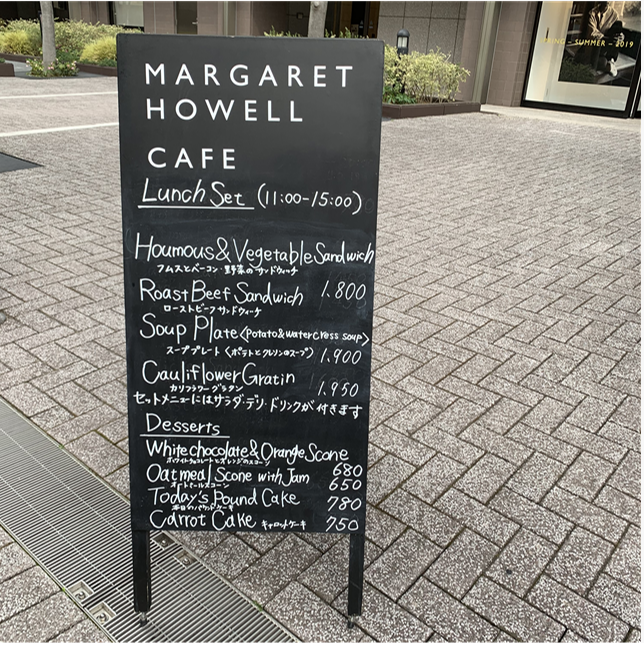 MARGARET
HOWELL
CAFE
Lunch Set (11:00-15:00)
Houmous & Vegetable Sandwich
フムスとベーコン・野菜のサンドウィッチ
Roast Beef Sandwich 1.800
ローストビーフサンドウィッチ
Soup Plate <Potato & watercress soup>
スーププレート〈ポテトとクレソンのスープ〉 1,900
Cauliflower Gratin
カリフラワーグラタン 1,950
セットメニューにはサラダ・デリ・ドリンクが付きます
Desserts
White chocolate & Orange Scone
ホワイトチョコレートとオレンジのスコーン 680
Oatmeal Scone with Jam 650
オートミールスコーン
Today's Pound Cake 780
本日のパウンドケーキ
Carrot Cake キャロットケーキ 750
SUMMER - 2019